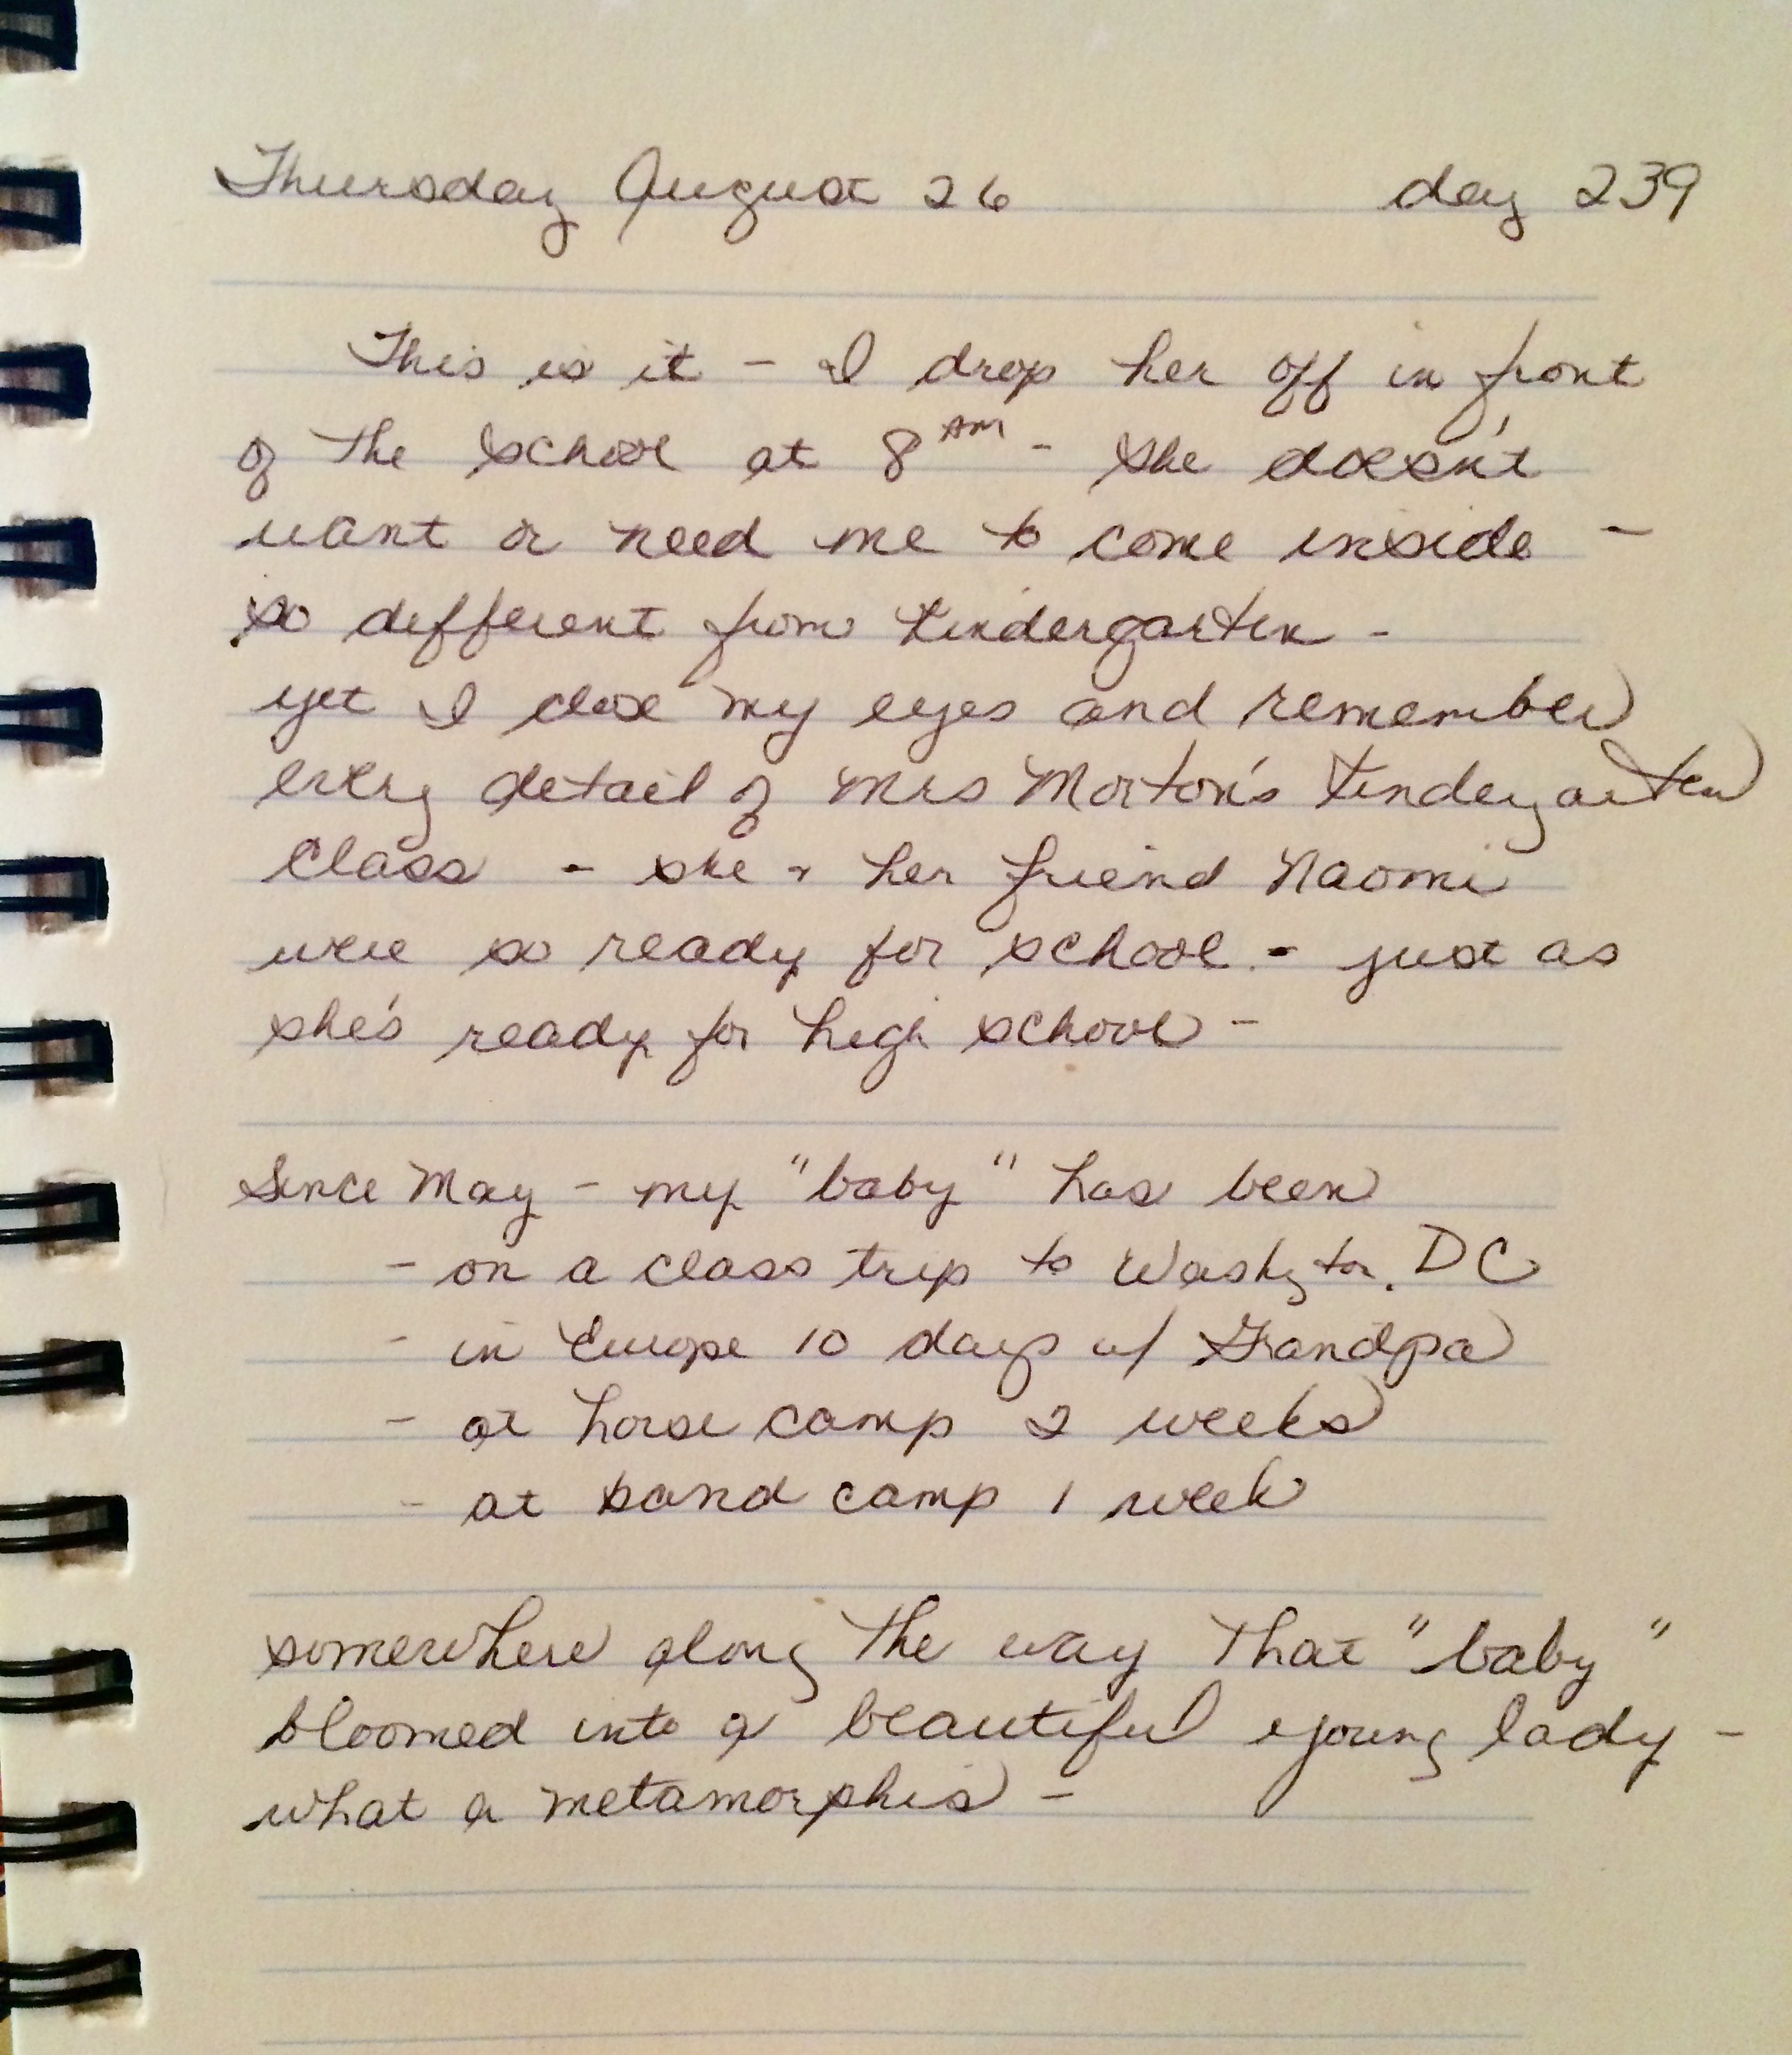 Thursday August 26 day 239
This is it - I drop her off in front
of the school at 8 AM - she doesn't
want or need me to come inside -
so different from kindergarten -
yet I close my eyes and remember
every detail of Mrs Morton's kindergarten
class - she & her friend Naomi
were so ready for school - just as
she's ready for high school -
Since May - my "baby" has been
- on a class trip to Washgton. DC
- in Europe 10 days w/ Grandpa
- at horse camp 2 weeks
- at band camp 1 week
somewhere along the way that "baby"
bloomed into a beautiful young lady -
what a metamorphis -